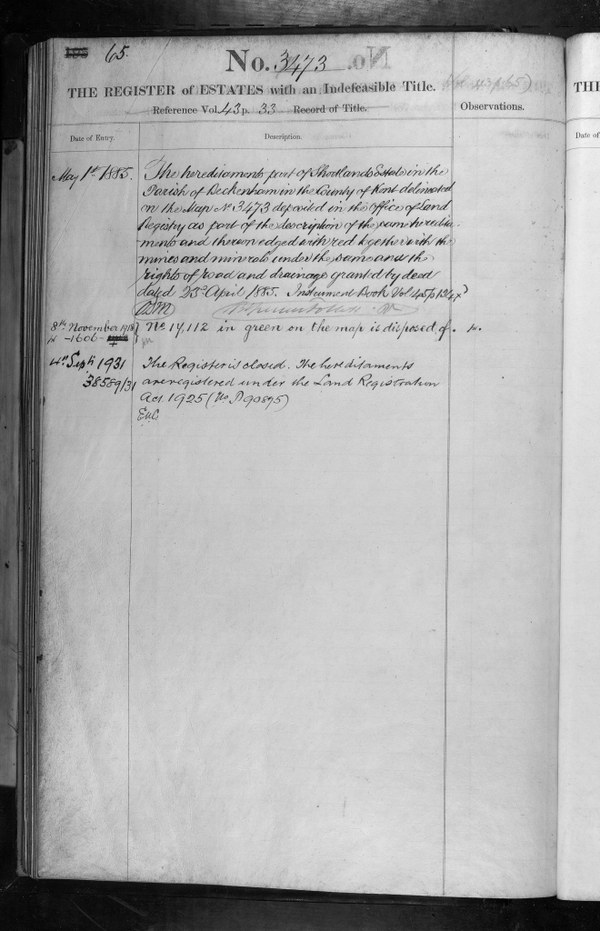 65.
No. 3473
THE REGISTER of ESTATES with an Indefeasible Title.
Reference Vol. 43 p. 33 Record of Title.
Observations.
Date of Entry.
Description.
May 1st 1885.
The hereditaments part of Shortlands Estate in the
Parish of Beckenham in the County of Kent delineated
on the Map No 3473 deposited in the Office of Land
Registry as part of the description of the same heredita-
ments and thereon edged with red together with the
mines and minerals under the same and the
rights of road and drainage granted by deed
dated 23rd April 1885. Instrument Book Vol 45 p
8th November 1918
-1606-
No. 14,112 in green on the map is disposed of.
4th Sept 1931
38589/31
The Register is closed. The hereditaments
are registered under the Land Registration
Act. 1925 (No P90895)
THE
Date of